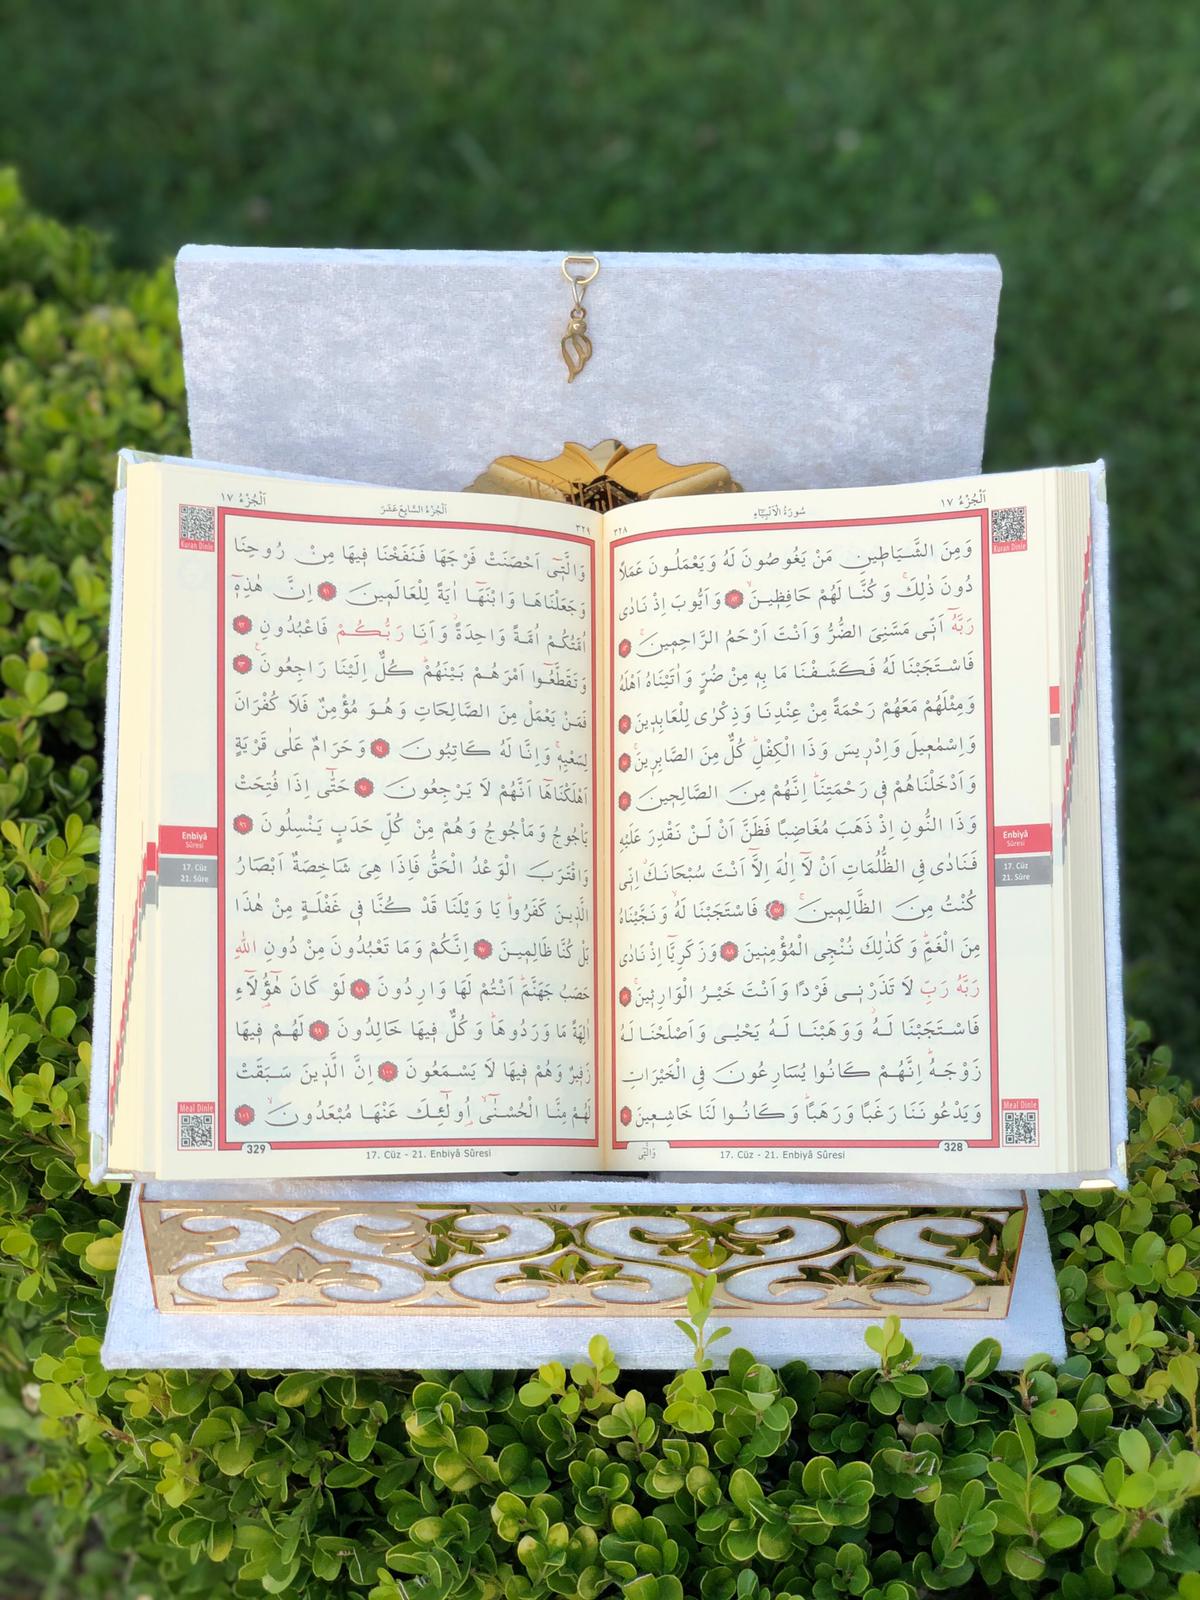 اَلْجُزْءُ ١٧
سُورَةُ الْاَنْبِيَاءِ
٣٢٨
Kuran Dinle
وَمِنَ الشَّيَاطٖينِ مَنْ يَغُوصُونَ لَهُ وَيَعْمَلُونَ عَمَلًا
دُونَ ذٰلِكَۚ وَكُنَّا لَهُمْ حَافِظٖينَۙ ٨٢ وَاَيُّوبَ اِذْ نَادٰى
رَبَّهُٓ اَنّٖى مَسَّنِىَ الضُّرُّ وَاَنْتَ اَرْحَمُ الرَّاحِمٖينَۚ ٨٣
فَاسْتَجَبْنَا لَهُ فَكَشَفْنَا مَا بِهٖ مِنْ ضُرٍّ وَاٰتَيْنَاهُ اَهْلَهُ
وَمِثْلَهُمْ مَعَهُمْ رَحْمَةً مِنْ عِنْدِنَا وَذِكْرٰى لِلْعَابِدٖينَ ٨٤
وَاِسْمٰعٖيلَ وَاِدْرٖيسَ وَذَا الْكِفْلِؕ كُلٌّ مِنَ الصَّابِرٖينَۚ ٨٥
وَاَدْخَلْنَاهُمْ فٖى رَحْمَتِنَاؕ اِنَّهُمْ مِنَ الصَّالِحٖينَ ٨٦
وَذَا النُّونِ اِذْ ذَهَبَ مُغَاضِبًا فَظَنَّ اَنْ لَنْ نَقْدِرَ عَلَيْهِ
فَنَادٰى فِى الظُّلُمَاتِ اَنْ لَٓا اِلٰهَ اِلَّٓا اَنْتَ سُبْحَانَكَ اِنّٖى
كُنْتُ مِنَ الظَّالِمٖينَۚ ٨٧ فَاسْتَجَبْنَا لَهُۙ وَنَجَّيْنَاهُ
مِنَ الْغَمِّؕ وَكَذٰلِكَ نُنْجِى الْمُؤْمِنٖينَ ٨٨ وَزَكَرِيَّٓا اِذْ نَادٰى
رَبَّهُ رَبِّ لَا تَذَرْنٖى فَرْدًا وَاَنْتَ خَيْرُ الْوَارِثٖينَۚ ٨٩
فَاسْتَجَبْنَا لَهُؗ وَوَهَبْنَا لَهُ يَحْيٰى وَاَصْلَحْنَا لَهُ
زَوْجَهُؕ اِنَّهُمْ كَانُوا يُسَارِعُونَ فِى الْخَيْرَاتِ
وَيَدْعُونَنَا رَغَبًا وَرَهَبًاؕ وَكَانُوا لَنَا خَاشِعٖينَ ٩٠
Enbiyâ
Sûresi
17. Cüz
21. Sûre
Meal Dinle
وَالَّتٖٓى
17. Cüz - 21. Enbiyâ Sûresi
328
اَلْجُزْءُ ١٧
اَلْجُزْءُ السَّابِعَ عَشَرَ
٣٢٩
Kuran Dinle
وَالَّتٖٓى اَحْصَنَتْ فَرْجَهَا فَنَفَخْنَا فٖيهَا مِنْ رُوحِنَا
وَجَعَلْنَاهَا وَابْنَهَٓا اٰيَةً لِلْعَالَمٖينَ ٩١ اِنَّ هٰذِهٖٓ
اُمَّتُكُمْ اُمَّةً وَاحِدَةًؗ وَاَنَا۬ رَبُّكُمْ فَاعْبُدُونِ ٩٢
وَتَقَطَّعُٓوا اَمْرَهُمْ بَيْنَهُمْؕ كُلٌّ اِلَيْنَا رَاجِعُونَ۟ ٩٣
فَمَنْ يَعْمَلْ مِنَ الصَّالِحَاتِ وَهُوَ مُؤْمِنٌ فَلَا كُفْرَانَ
لِسَعْيِهٖۚ وَاِنَّا لَهُ كَاتِبُونَ ٩٤ وَحَرَامٌ عَلٰى قَرْيَةٍ
اَهْلَكْنَاهَٓا اَنَّهُمْ لَا يَرْجِعُونَ ٩٥ حَتّٰٓى اِذَا فُتِحَتْ
يَاْجُوجُ وَمَاْجُوجُ وَهُمْ مِنْ كُلِّ حَدَبٍ يَنْسِلُونَ ٩٦
وَاقْتَرَبَ الْوَعْدُ الْحَقُّ فَاِذَا هِىَ شَاخِصَةٌ اَبْصَارُ
الَّذٖينَ كَفَرُواؕ يَا وَيْلَنَا قَدْ كُنَّا فٖى غَفْلَةٍ مِنْ هٰذَا
بَلْ كُنَّا ظَالِمٖينَ ٩٧ اِنَّكُمْ وَمَا تَعْبُدُونَ مِنْ دُونِ اللّٰهِ
حَصَبُ جَهَنَّمَؕ اَنْتُمْ لَهَا وَارِدُونَ ٩٨ لَوْ كَانَ هٰٓؤُ۬لَٓاءِ
اٰلِهَةً مَا وَرَدُوهَاؕ وَكُلٌّ فٖيهَا خَالِدُونَ ٩٩ لَهُمْ فٖيهَا
زَفٖيرٌ وَهُمْ فٖيهَا لَا يَسْمَعُونَ ١٠٠ اِنَّ الَّذٖينَ سَبَقَتْ
لَهُمْ مِنَّا الْحُسْنٰٓىۙ اُو۬لٰٓئِكَ عَنْهَا مُبْعَدُونَۙ ١٠١
Enbiyâ
Sûresi
17. Cüz
21. Sûre
Meal Dinle
329
17. Cüz - 21. Enbiyâ Sûresi